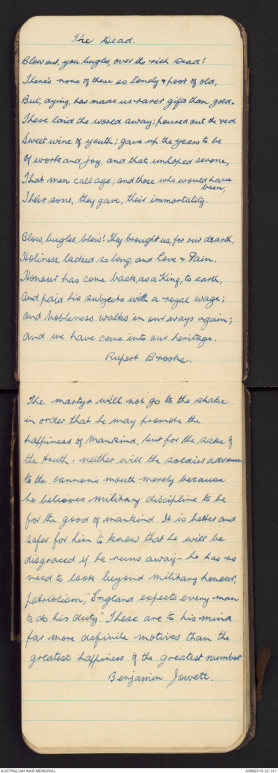 The Dead.
Blow out, you bugles, over the rich Dead!
There's none of these so lonely & poor of old,
But, dying, has made us rarer gifts than gold.
These laid the world away; poured out the red
Sweet wine of youth; gave up the years to be
Of work and joy, and that unhoped serene,
That men call age; and those who would have
been,
Their sons, they gave, their immortality.
Blow, bugles, blow! They brought us, for our dearth,
Holiness, lacked so long, and Love & Pain.
Honour has come back, as a King, to earth,
And paid his subjects with a royal wage;
And Nobleness walks in our ways again;
And we have come into our heritage.
Rupert Brooke.
The martyr will not go to the stake
in order that he may promote the
happiness of mankind, but for the sake of
the truth. neither will the soldier advance
to the cannon's mouth merely because
he believes military discipline to be
for the good of mankind. It is better and
safer for him to know that he will be
disgraced if he runs away - he has no
need to look beyond military honour,
patriotism, "England expects every man
to do his duty." These are to his mind
far more definite motives than the
greatest happiness of the greatest number
Benjamin Jowett.
AUSTRALIAN WAR MEMORIAL